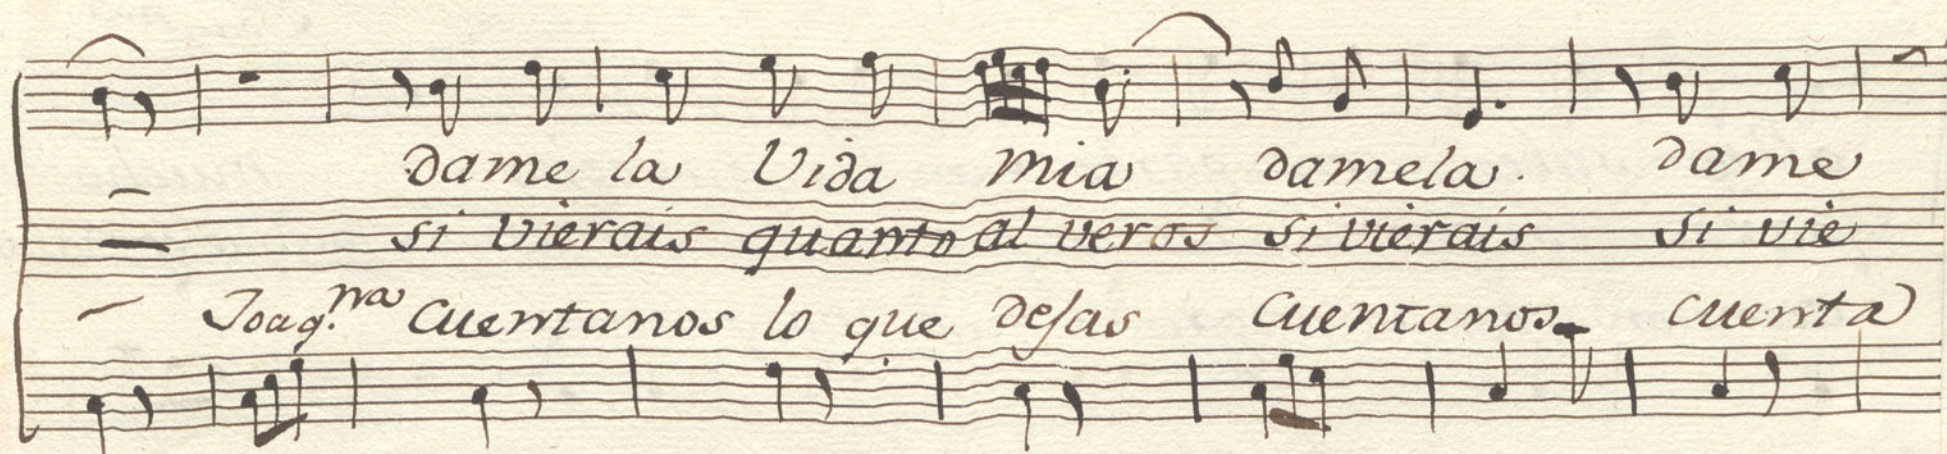 dame la Vida mia damela. dame
si vierais quanto al veros si vierais si vie
Joaq.na Cuentanos lo que dejas Cuentanos cuenta